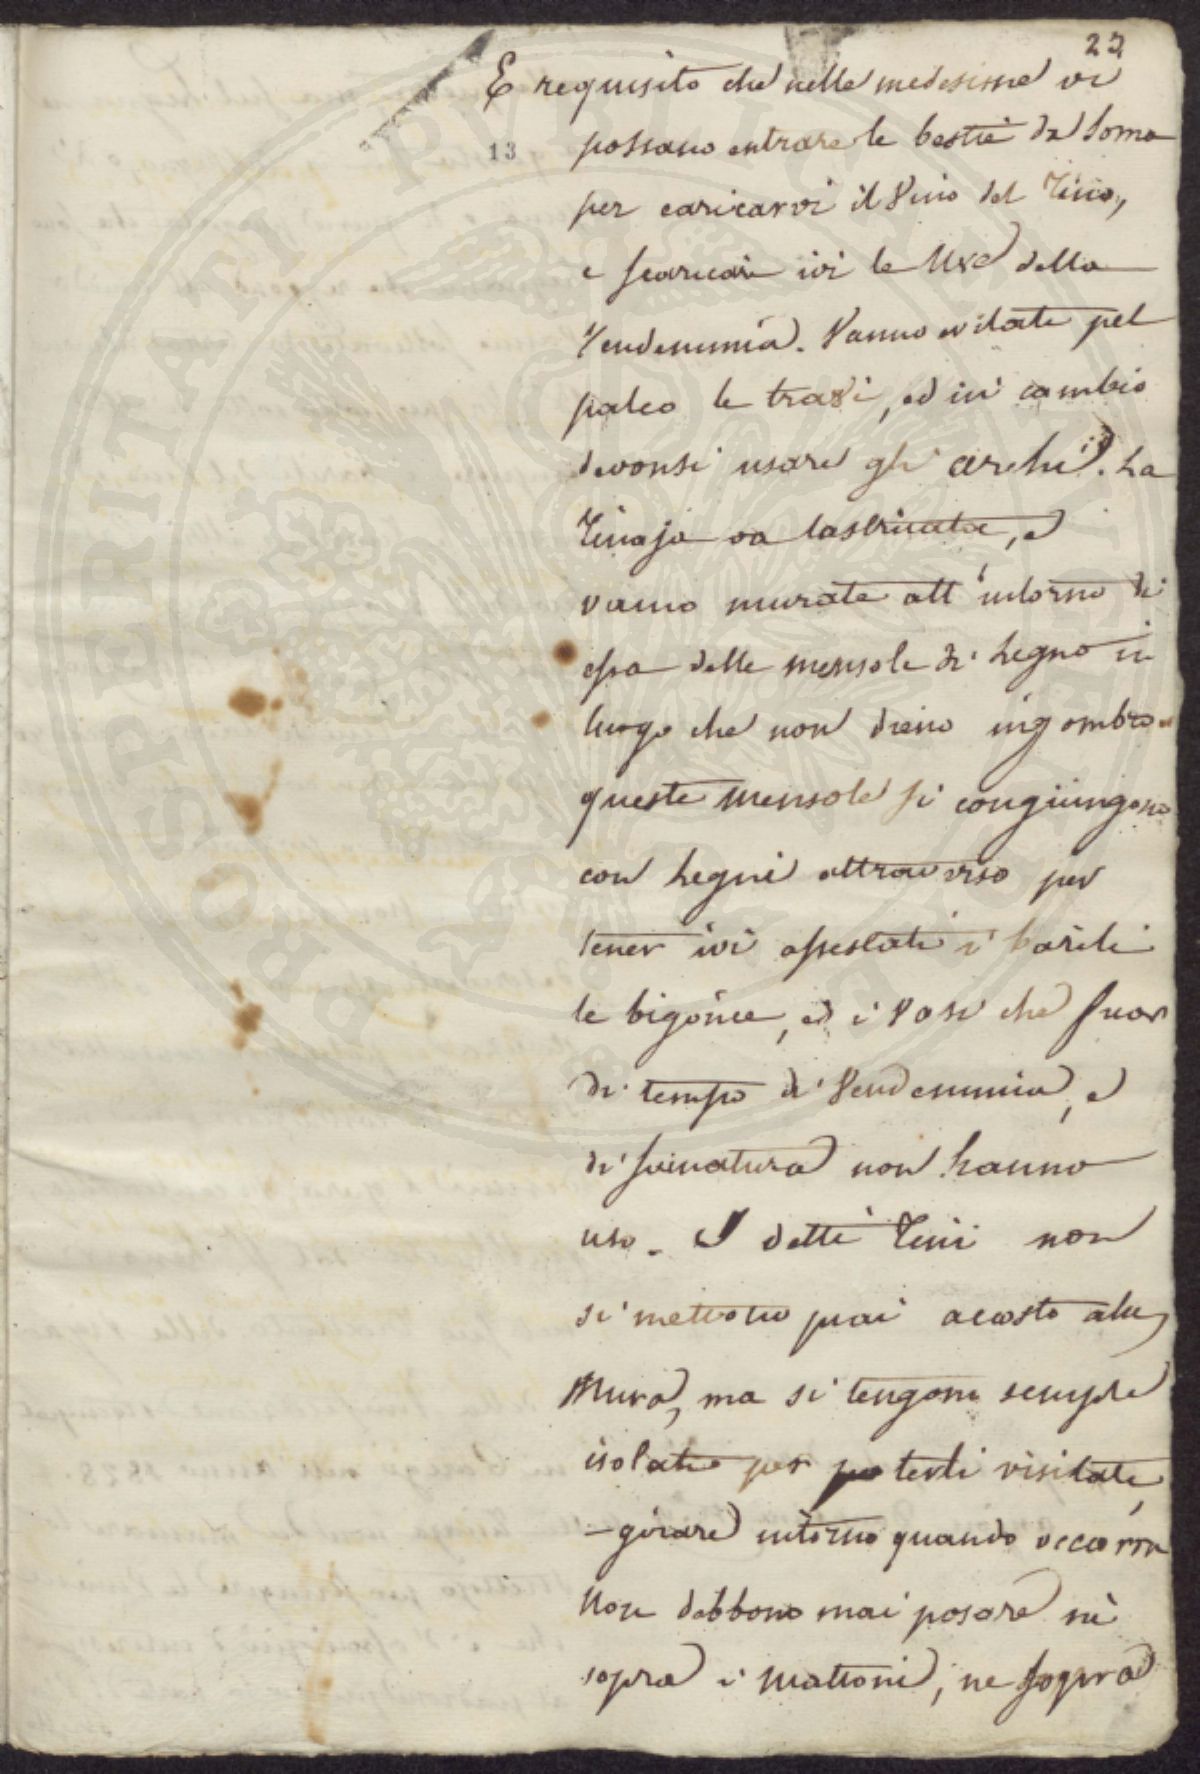 22
E requisito che nelle medesime vi
13
possano entrare le bestie da Soma
per caricarvi il Vino del Tino,
e scaricare ivi le Uve della
Vendemmia. Vanno evitate pel
palco le travi, ed in cambio
devonsi usare gli archi. La
Tinaja va lastricata, e
vanno murate all'intorno di
essa delle mensole di Legno in
luogo che non dieno ingombro
queste mensole si congiungono
con Legni attraverso per
tener ivi assestati i barili
le bigonce, ed i Vasi che fuor
di tempo di Vendemmia, e
di svinatura non hanno
uso. I detti Tini non
si mettono mai acosto alle
Mura, ma si tengono sempre
isolati per poterli visitate
girare intorno quando occorra
Non debbono mai posare nè
sopra i Mattoni, ne sopra
PROSPERITATI PUBLICAE